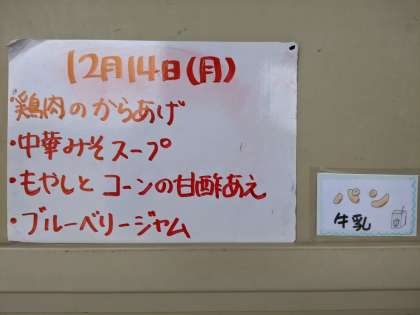 12月14日(月)
・鶏肉のからあげ
・中華みそスープ
・もやしと コーンの甘酢あえ
・ブルーベリージャム
パン
牛乳